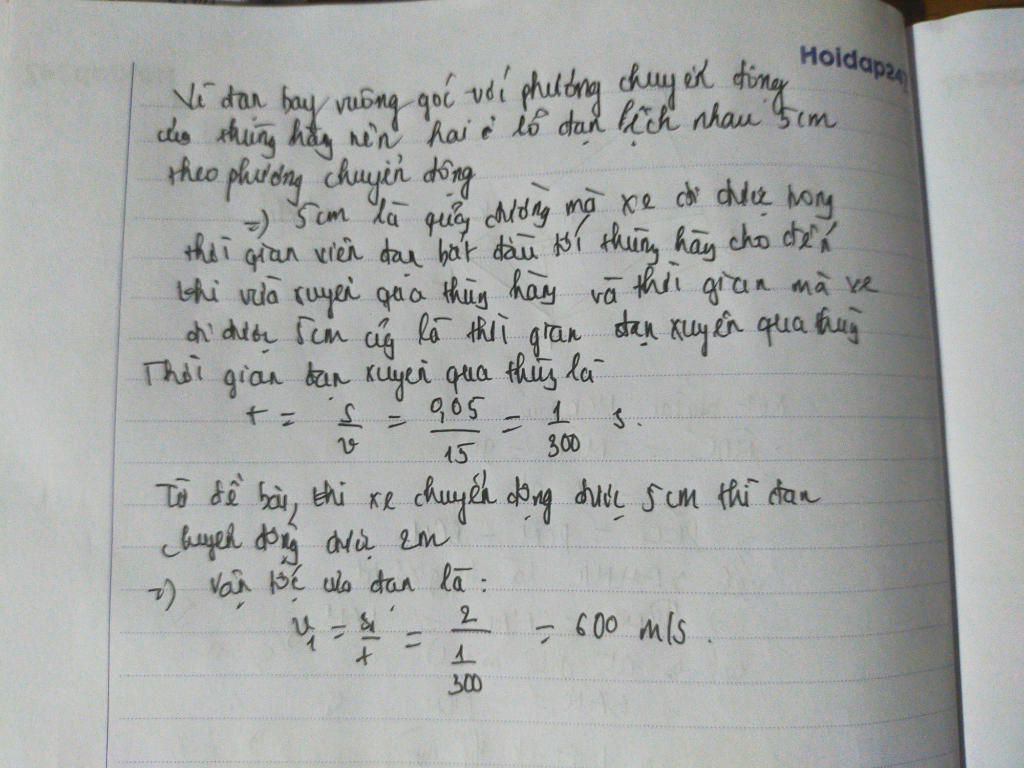 Hoidap247
Vì đạn bay vuông góc với phương chuyển động
của thùng hàng nên hai lỗ đạn lệch nhau 5cm
theo phương chuyển động
=> 5cm là quãng đường mà xe đi được trong
thời gian viên đạn bắt đầu tới thùng hàng cho đến
khi vừa xuyên qua thùng hàng và thời gian mà xe
đi được 5cm cũg là thời gian đạn xuyên qua thùng
Thời gian đạn xuyên qua thùng là
t = s/v = 0,05/15 = 1/300 s.
Từ đề bài, khi xe chuyển động được 5cm thì đạn
chuyển động được 2m
=> Vận tốc của đạn là:
v₁ = s₁/t = 2/(1/300) = 600 m/s.